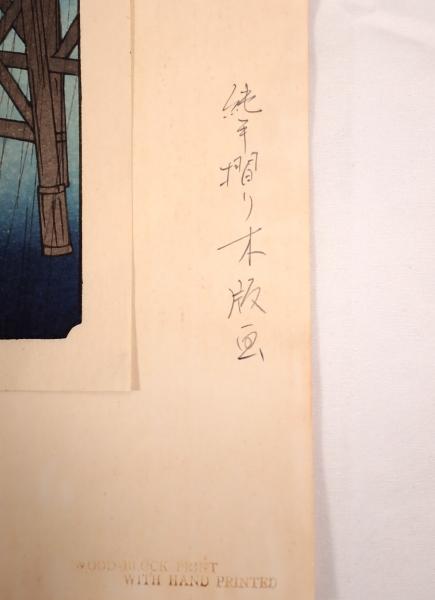 純手摺り木版画
WOOD-BLOCK PRINT
WITH HAND PRINTED